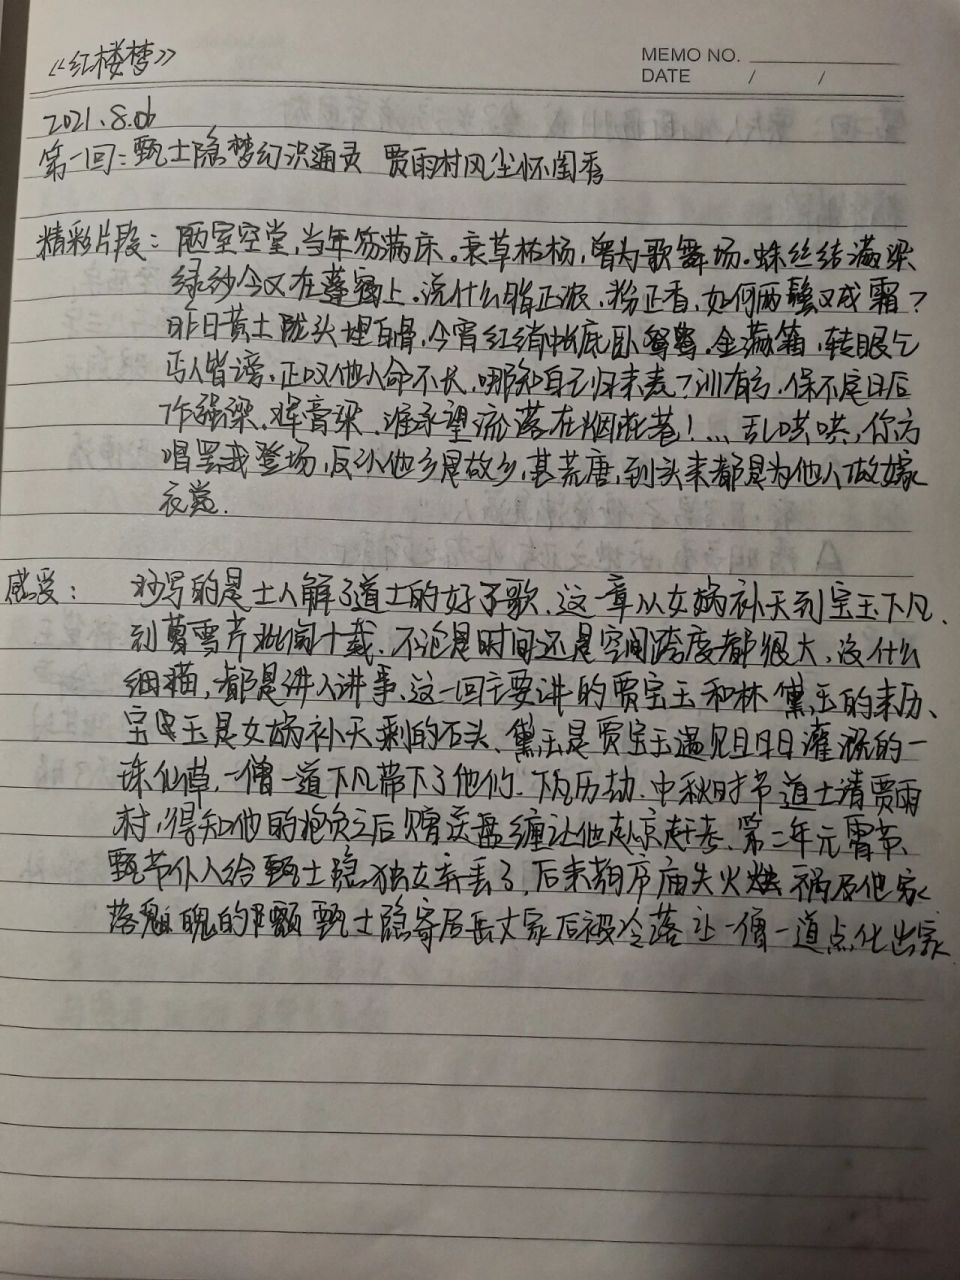 《红楼梦》
MEMO NO.
DATE / /
2021.8.06
第一回:甄士隐梦幻识通灵 贾雨村风尘怀闺秀
精彩片段:陋室空堂,当年笏满床。衰草枯杨,曾为歌舞场。蛛丝结满梁
绿纱今又在蓬窗上。说什么脂正浓、粉正香,如何两鬓又成霜?
昨日黄土陇头埋白骨,今宵红绡帐底卧鸳鸯。金满箱,转眼乞
丐人皆谤,正叹他人命不长,哪知自己归来丧?训有方,保不定日后
作强梁。择膏粱,谁承望流落在烟花巷!…乱哄哄,你方
唱罢我登场,反认他乡是故乡,甚荒唐,到头来都是为他人做嫁
衣裳.
感受: 抄写的是士人解了道士的好了歌、这一章从女娲补天到宝玉下凡、
到曹雪芹批阅十载、不论是时间还是空间跨度都很大、没什么
细描,都是讲人讲事、这一回主要讲的贾宝玉和林黛玉的来历、
宝玉是女娲补天剩的石头、黛玉是贾宝玉遇见且日日灌溉的一
珠仙草,一僧一道下凡带下了他们.下凡历劫.中秋时节道士请贾雨
村,得知他的抱负之后赠送盘缠让他赴京赶考、第二年元宵节、
甄节仆人给甄士隐独女弄丢了,后来葫芦庙失火 祸及他家
落魄的 甄士隐寄居岳丈家后被冷落让一僧一道点化出家